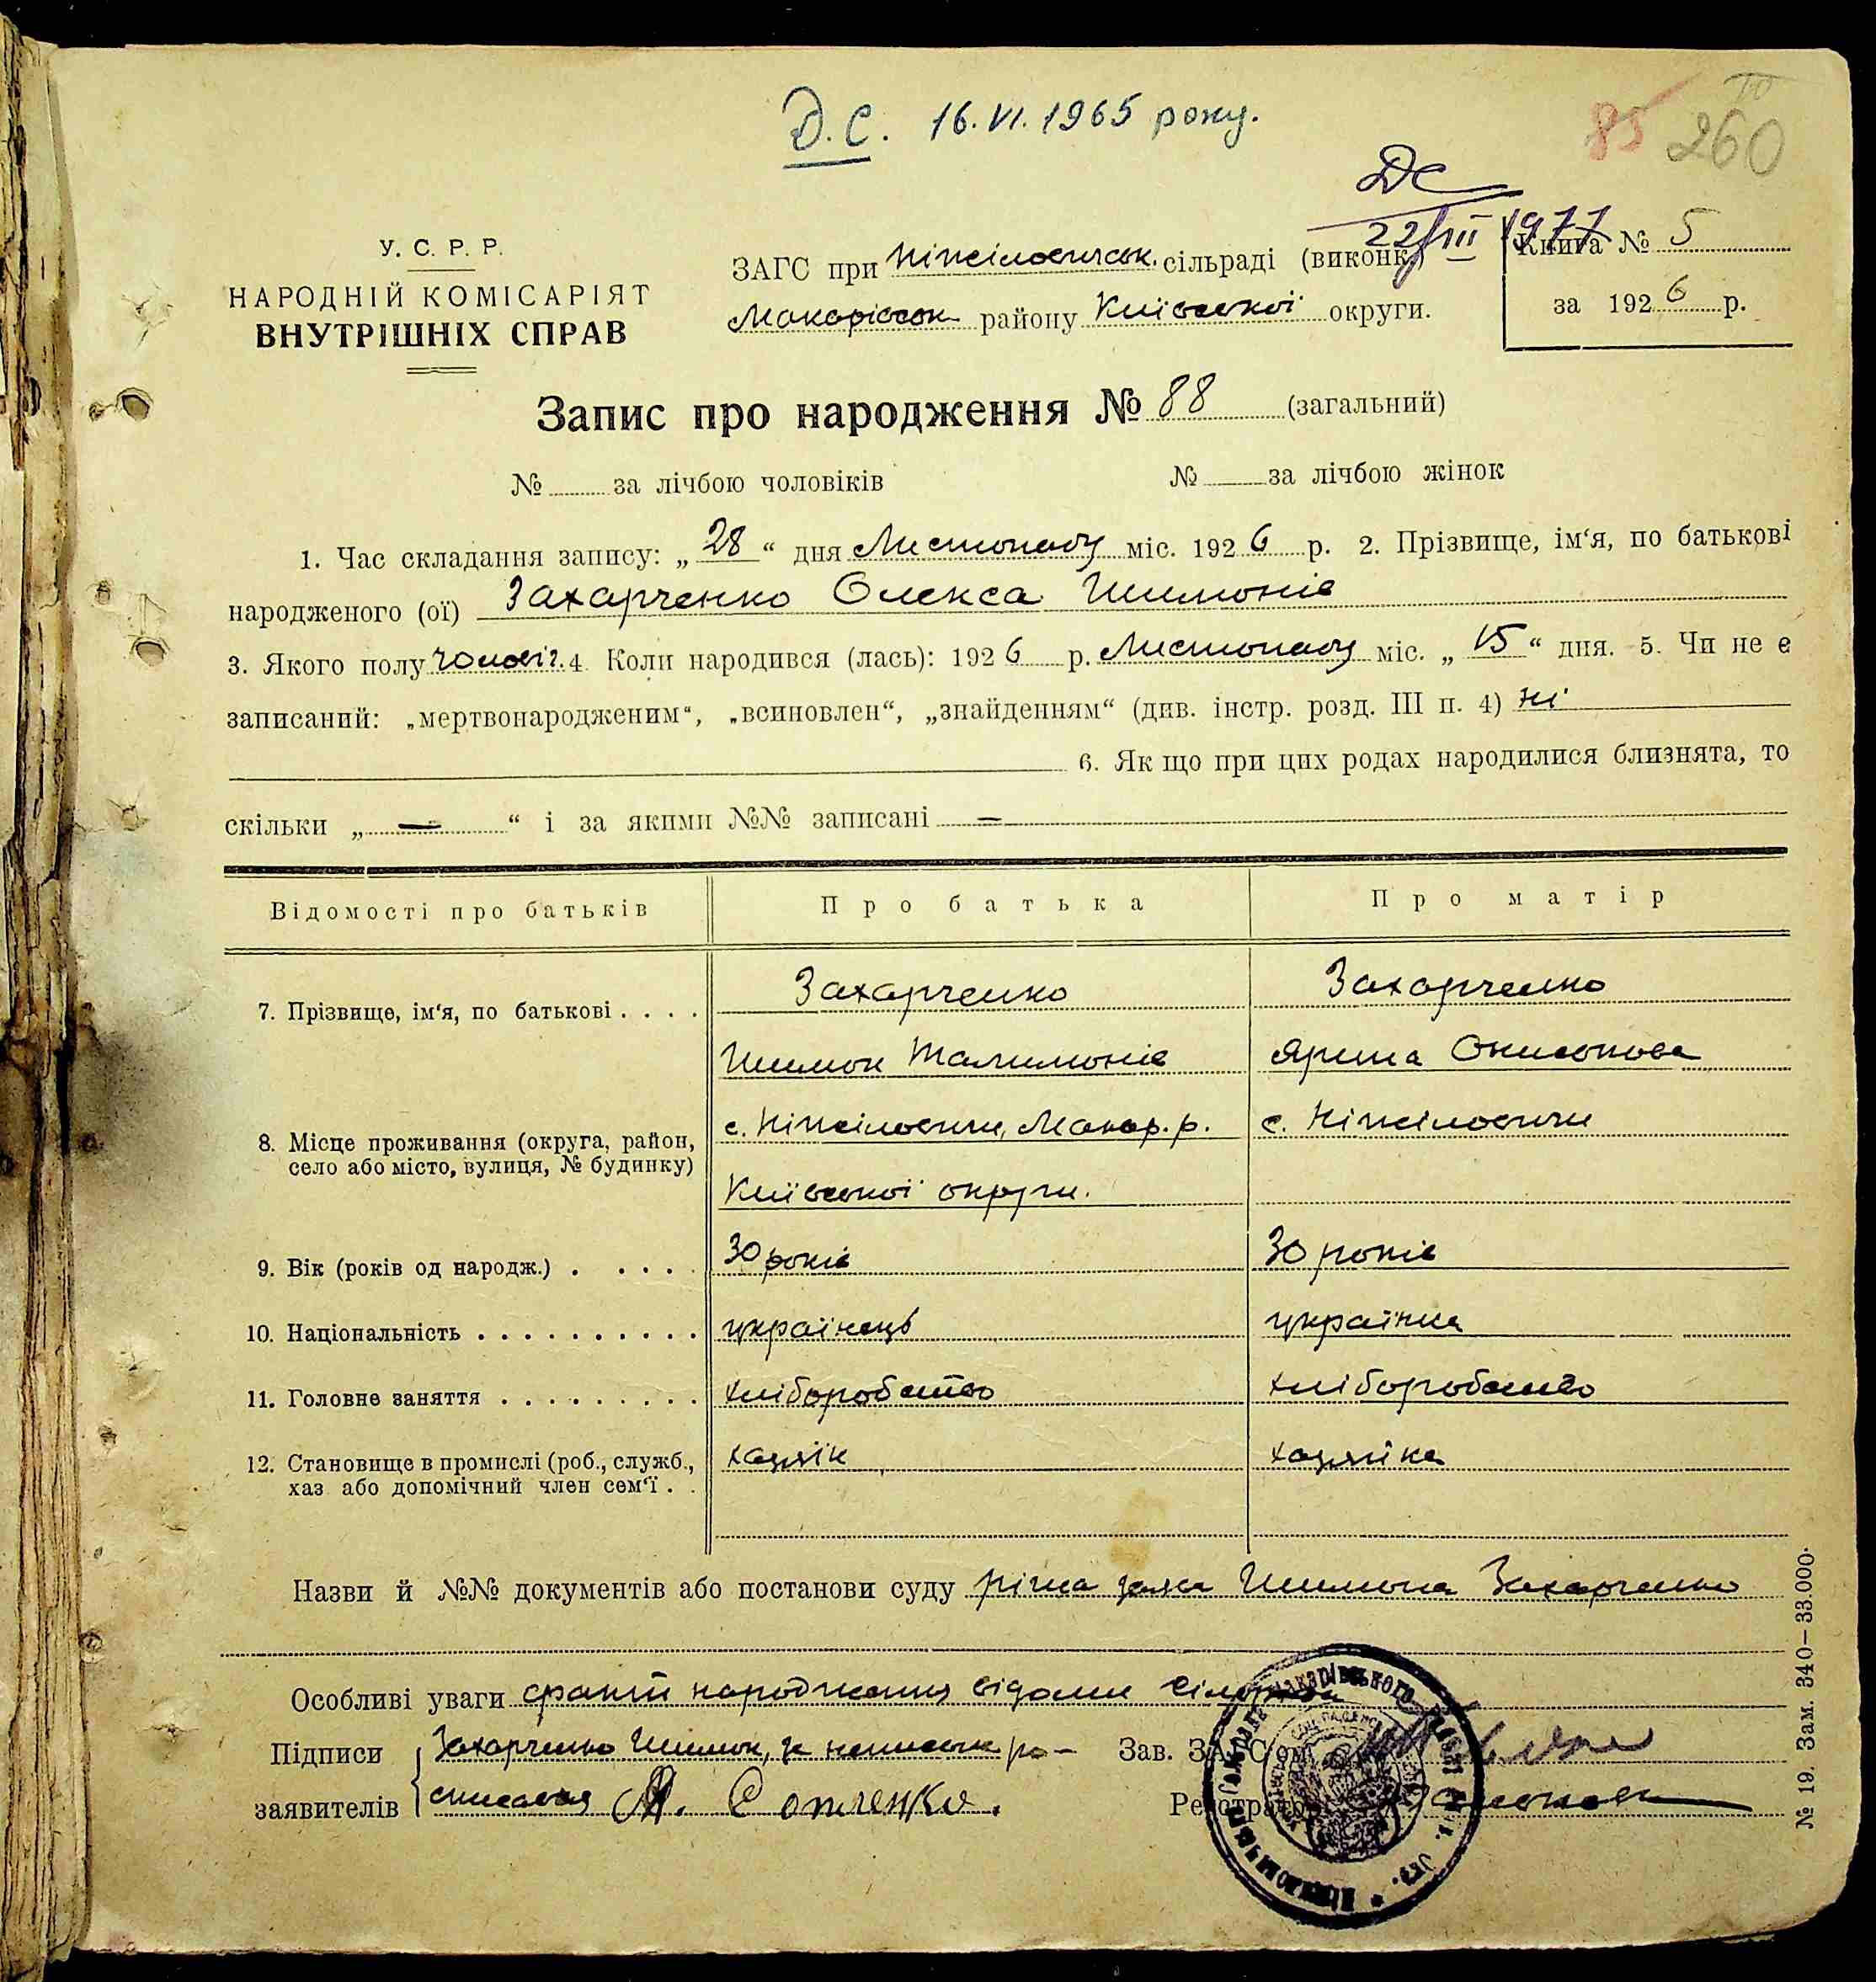 Д.С. 16.VI.1965 року.
85 260
ДС
22/III 1977
У. С. Р. Р.
НАРОДНІЙ КОМІСАРІЯТ
ВНУТРІШНІХ СПРАВ
ЗАГС при Ніжиловичськ. сільраді (виконк.)
Макарівськ району Київської округи.
Книга № 5
за 1926 р.
Запис про народження № 88 (загальний)
№ за лічбою чоловіків № за лічбою жінок
1. Час складання запису: „28“ дня Листопаду міс. 1926 р. 2. Прізвище, ім‘я, по батькові
народженого (ої) Захарченко Олекса Шимонів
3. Якого полу чоловіч. 4. Коли народився (лась): 1926 р. Листопаду міс. „15“ дня. 5. Чи не є
записаний: „мертвонародженим“, „всиновлен“, „знайденням“ (див. інстр. розд. III п. 4) ні
6. Як що при цих родах народилися близнята, то
скільки „ — “ і за якими №№ записані —
Відомості про батьків Про батька Про матір
7. Прізвище, ім‘я, по батькові . . . . Захарченко Захарченко
Шимон Талимонів Ярина
8. Місце проживання (округа, район, село або місто, вулиця, № будинку) с. Ніжиловичи, Макар. р. с. Ніжиловичи
Київської округи.
9. Вік (років од народж.) . . . . . 30 років 30 років
10. Національність . . . . . . . . . . українець українка
11. Головне заняття . . . . . . . . . хліборобство хліборобство
12. Становище в промислі (роб., служб., хаз або допомічний член сем‘ї . . хазяїн хазяїка
Назви й №№ документів або постанови суду заява Шимона Захарченко
Особливі уваги факт народження відомий сільраді
Підписи Захарченко Шимон, за неписьм. ро-
заявителів списався М. Сотченко.
Зав. ЗАГС‘ом
Реєстратор
№ 19. Зам. 340—33.000.